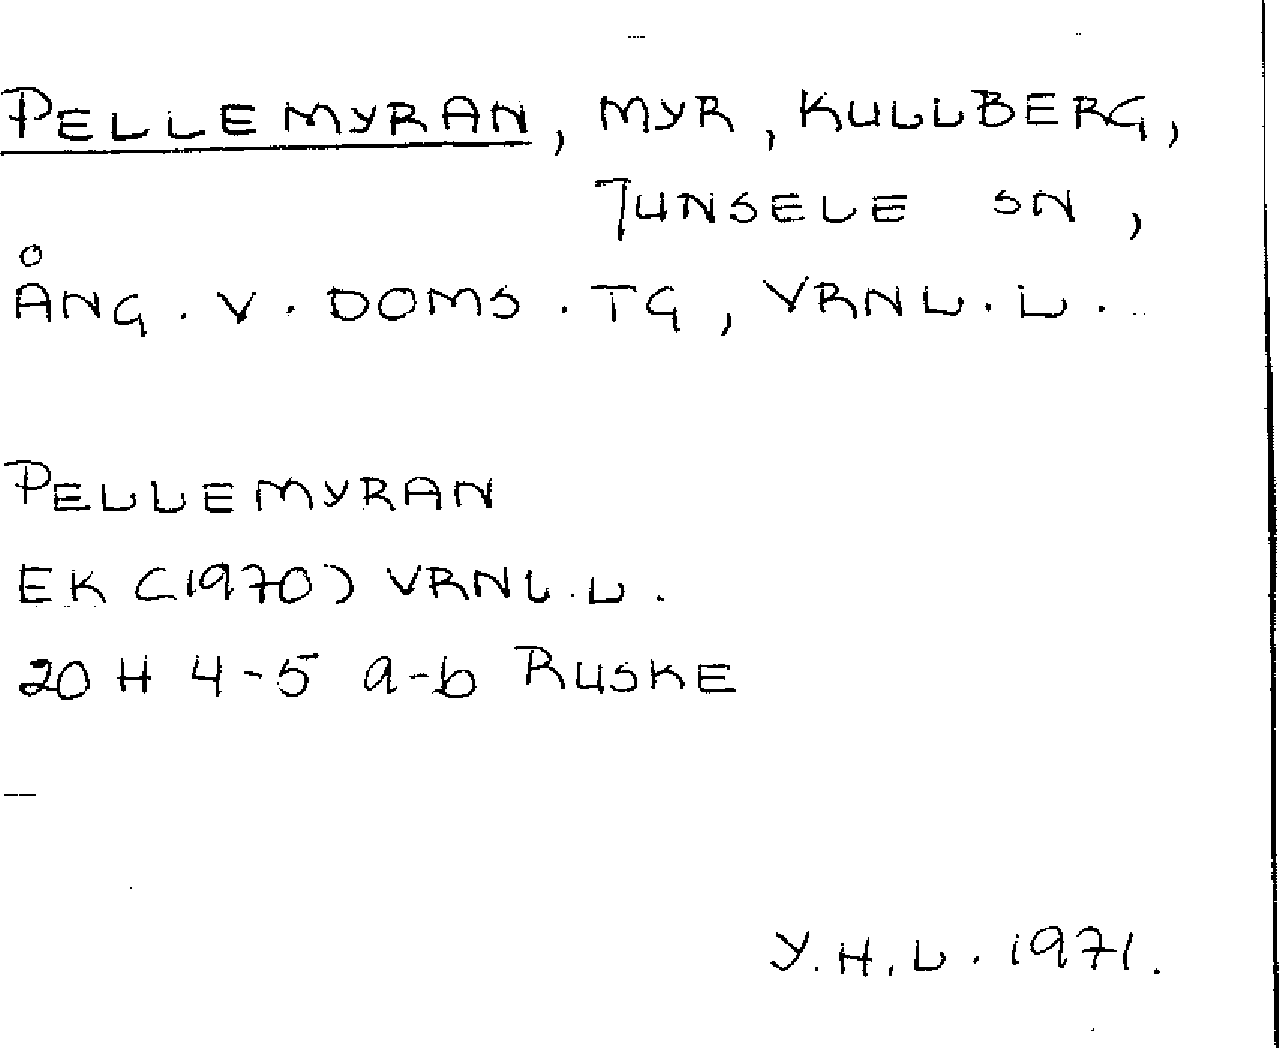 PELLEMYRAN, MYR, KULLBERG,
JUNSELE SN,
ÅNG. V. DOMS. TG, VRNL. L.
PELLEMYRAN
EK (1970) VRNL. L.
20 H 4-5 a-b RUSKE
Y. H. L. 1971.